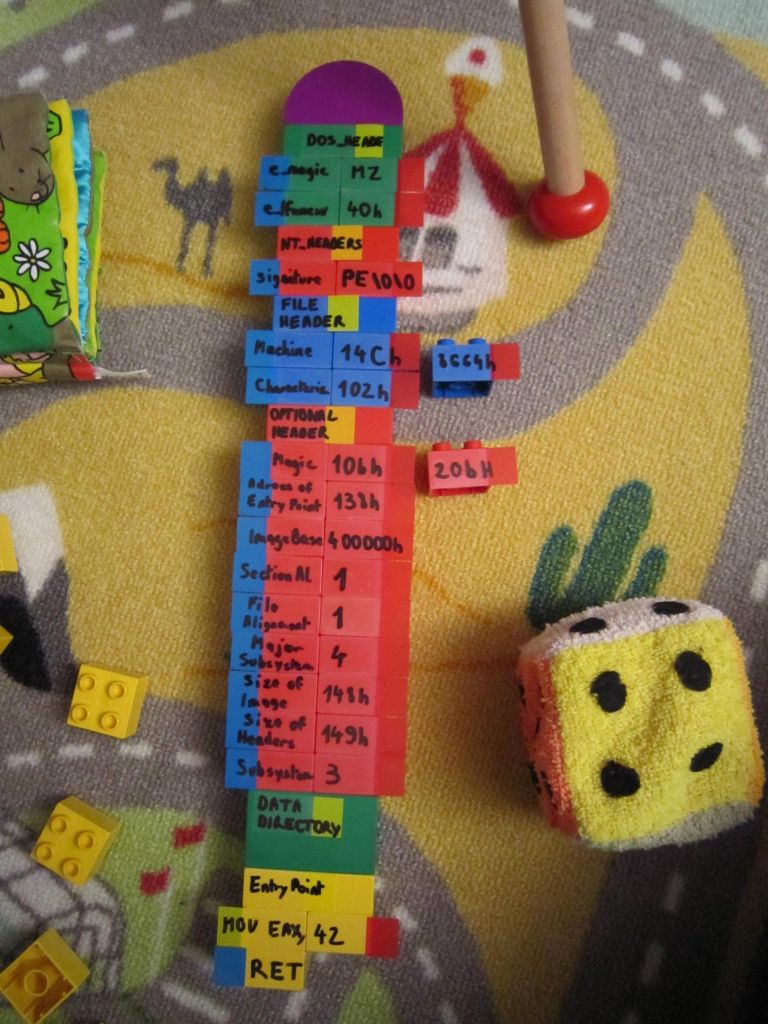 DOS_HEADE
e_magic MZ
e_lfanew 40h
NT_HEADERS
signature PE\0\0
FILE
HEADER
Machine 14Ch 8664h
Characteris 102h
OPTIONAL
HEADER
Magic 10bh 20bH
Adress of
Entry Point 138h
ImageBase 400000h
Section AL 1
File
Alignment 1
Major
Subsystem 4
Size of
Image 148h
Size of
Headers 149h
Subsystem 3
DATA
DIRECTORY
Entry Point
MOV EAX, 42
RET